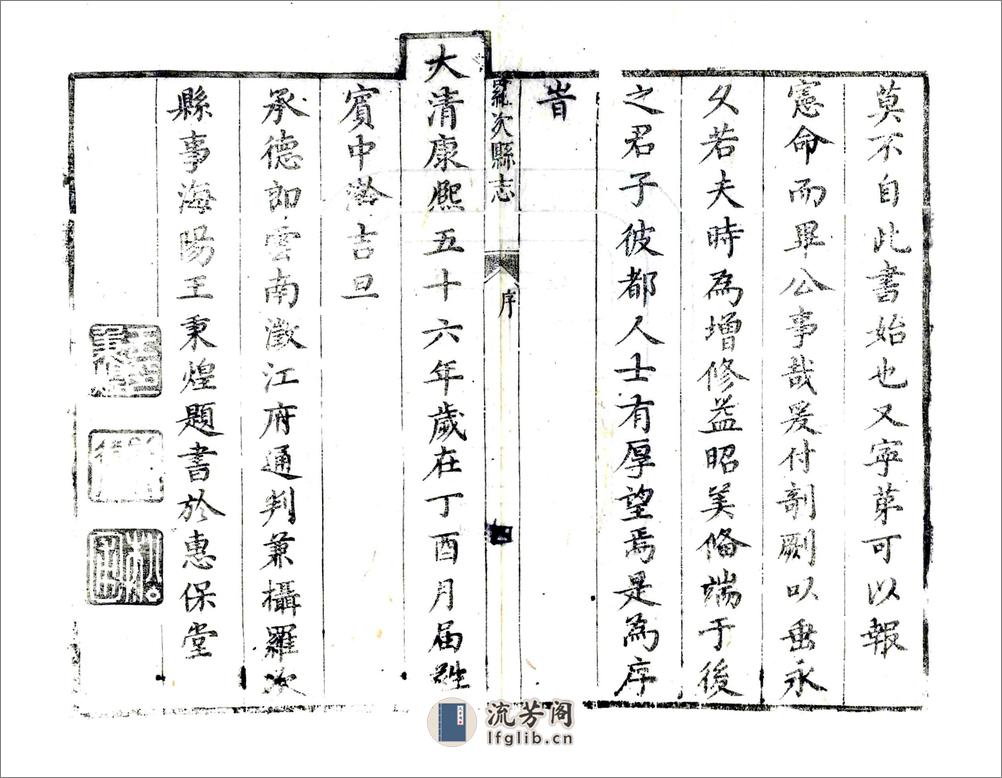 莫不自此書始也又寧苐可以報
憲命而畢公事哉爰付剞劂以垂永
久若夫時為增修益昭美俻端于後
之君子彼都人士有厚望焉是為序
旹
羅次縣志
序
四
大清康熈五十六年歲在丁酉月届甤
賓中澣吉旦
承德郎雲南澂江府通判兼攝羅次
縣事海陽王秉煌題書於惠保堂
流芳阁
lfglib.cn